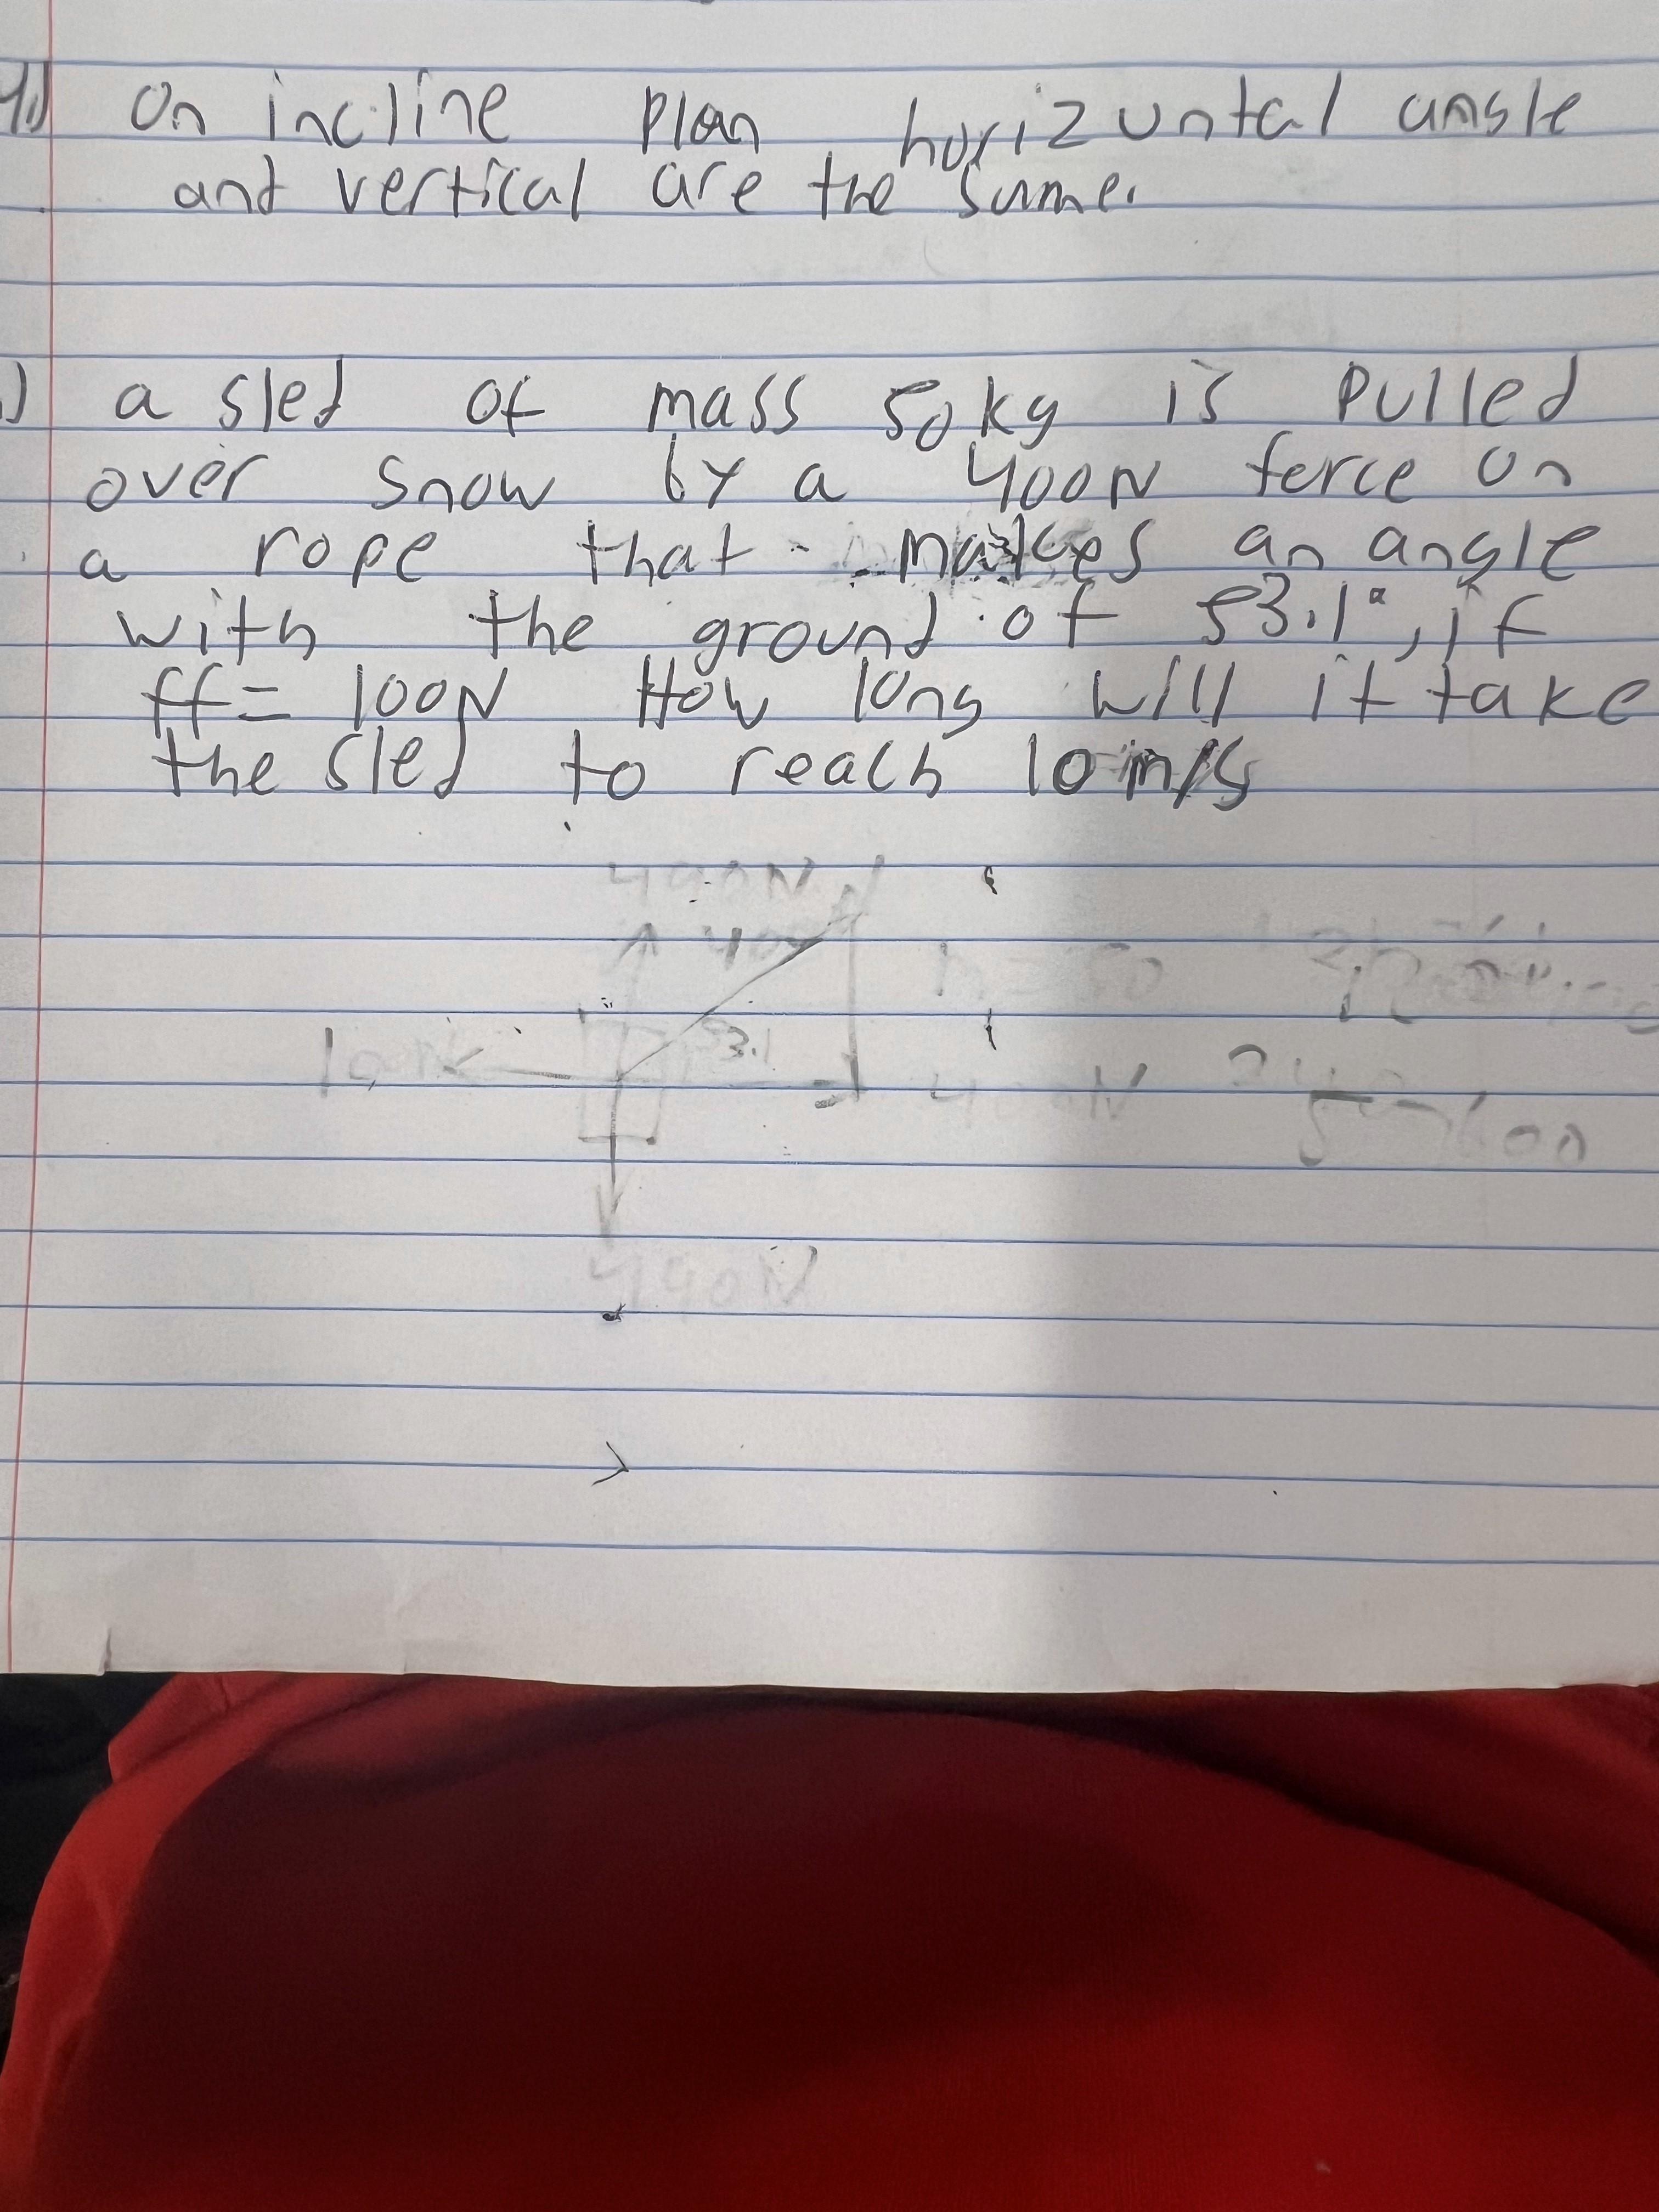 4.) On incline plan horizuntal angle
and vertical are the same.
) a sled of mass 50kg is pulled
over snow by a 400N force on
a rope that makes an angle
with the ground of 53.1°, if
ff= 100N How long will it take
the sled to reach 10 m/s
490N
400
53.1
400N
490N